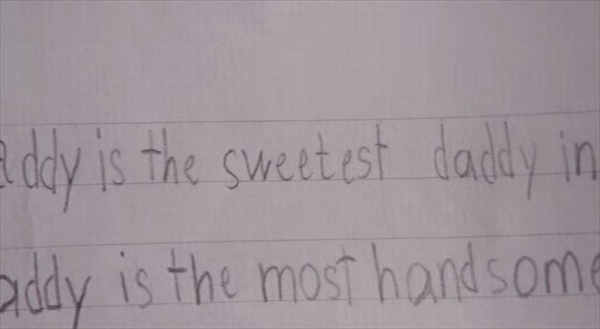 addy is the sweetest daddy in
addy is the most handsome